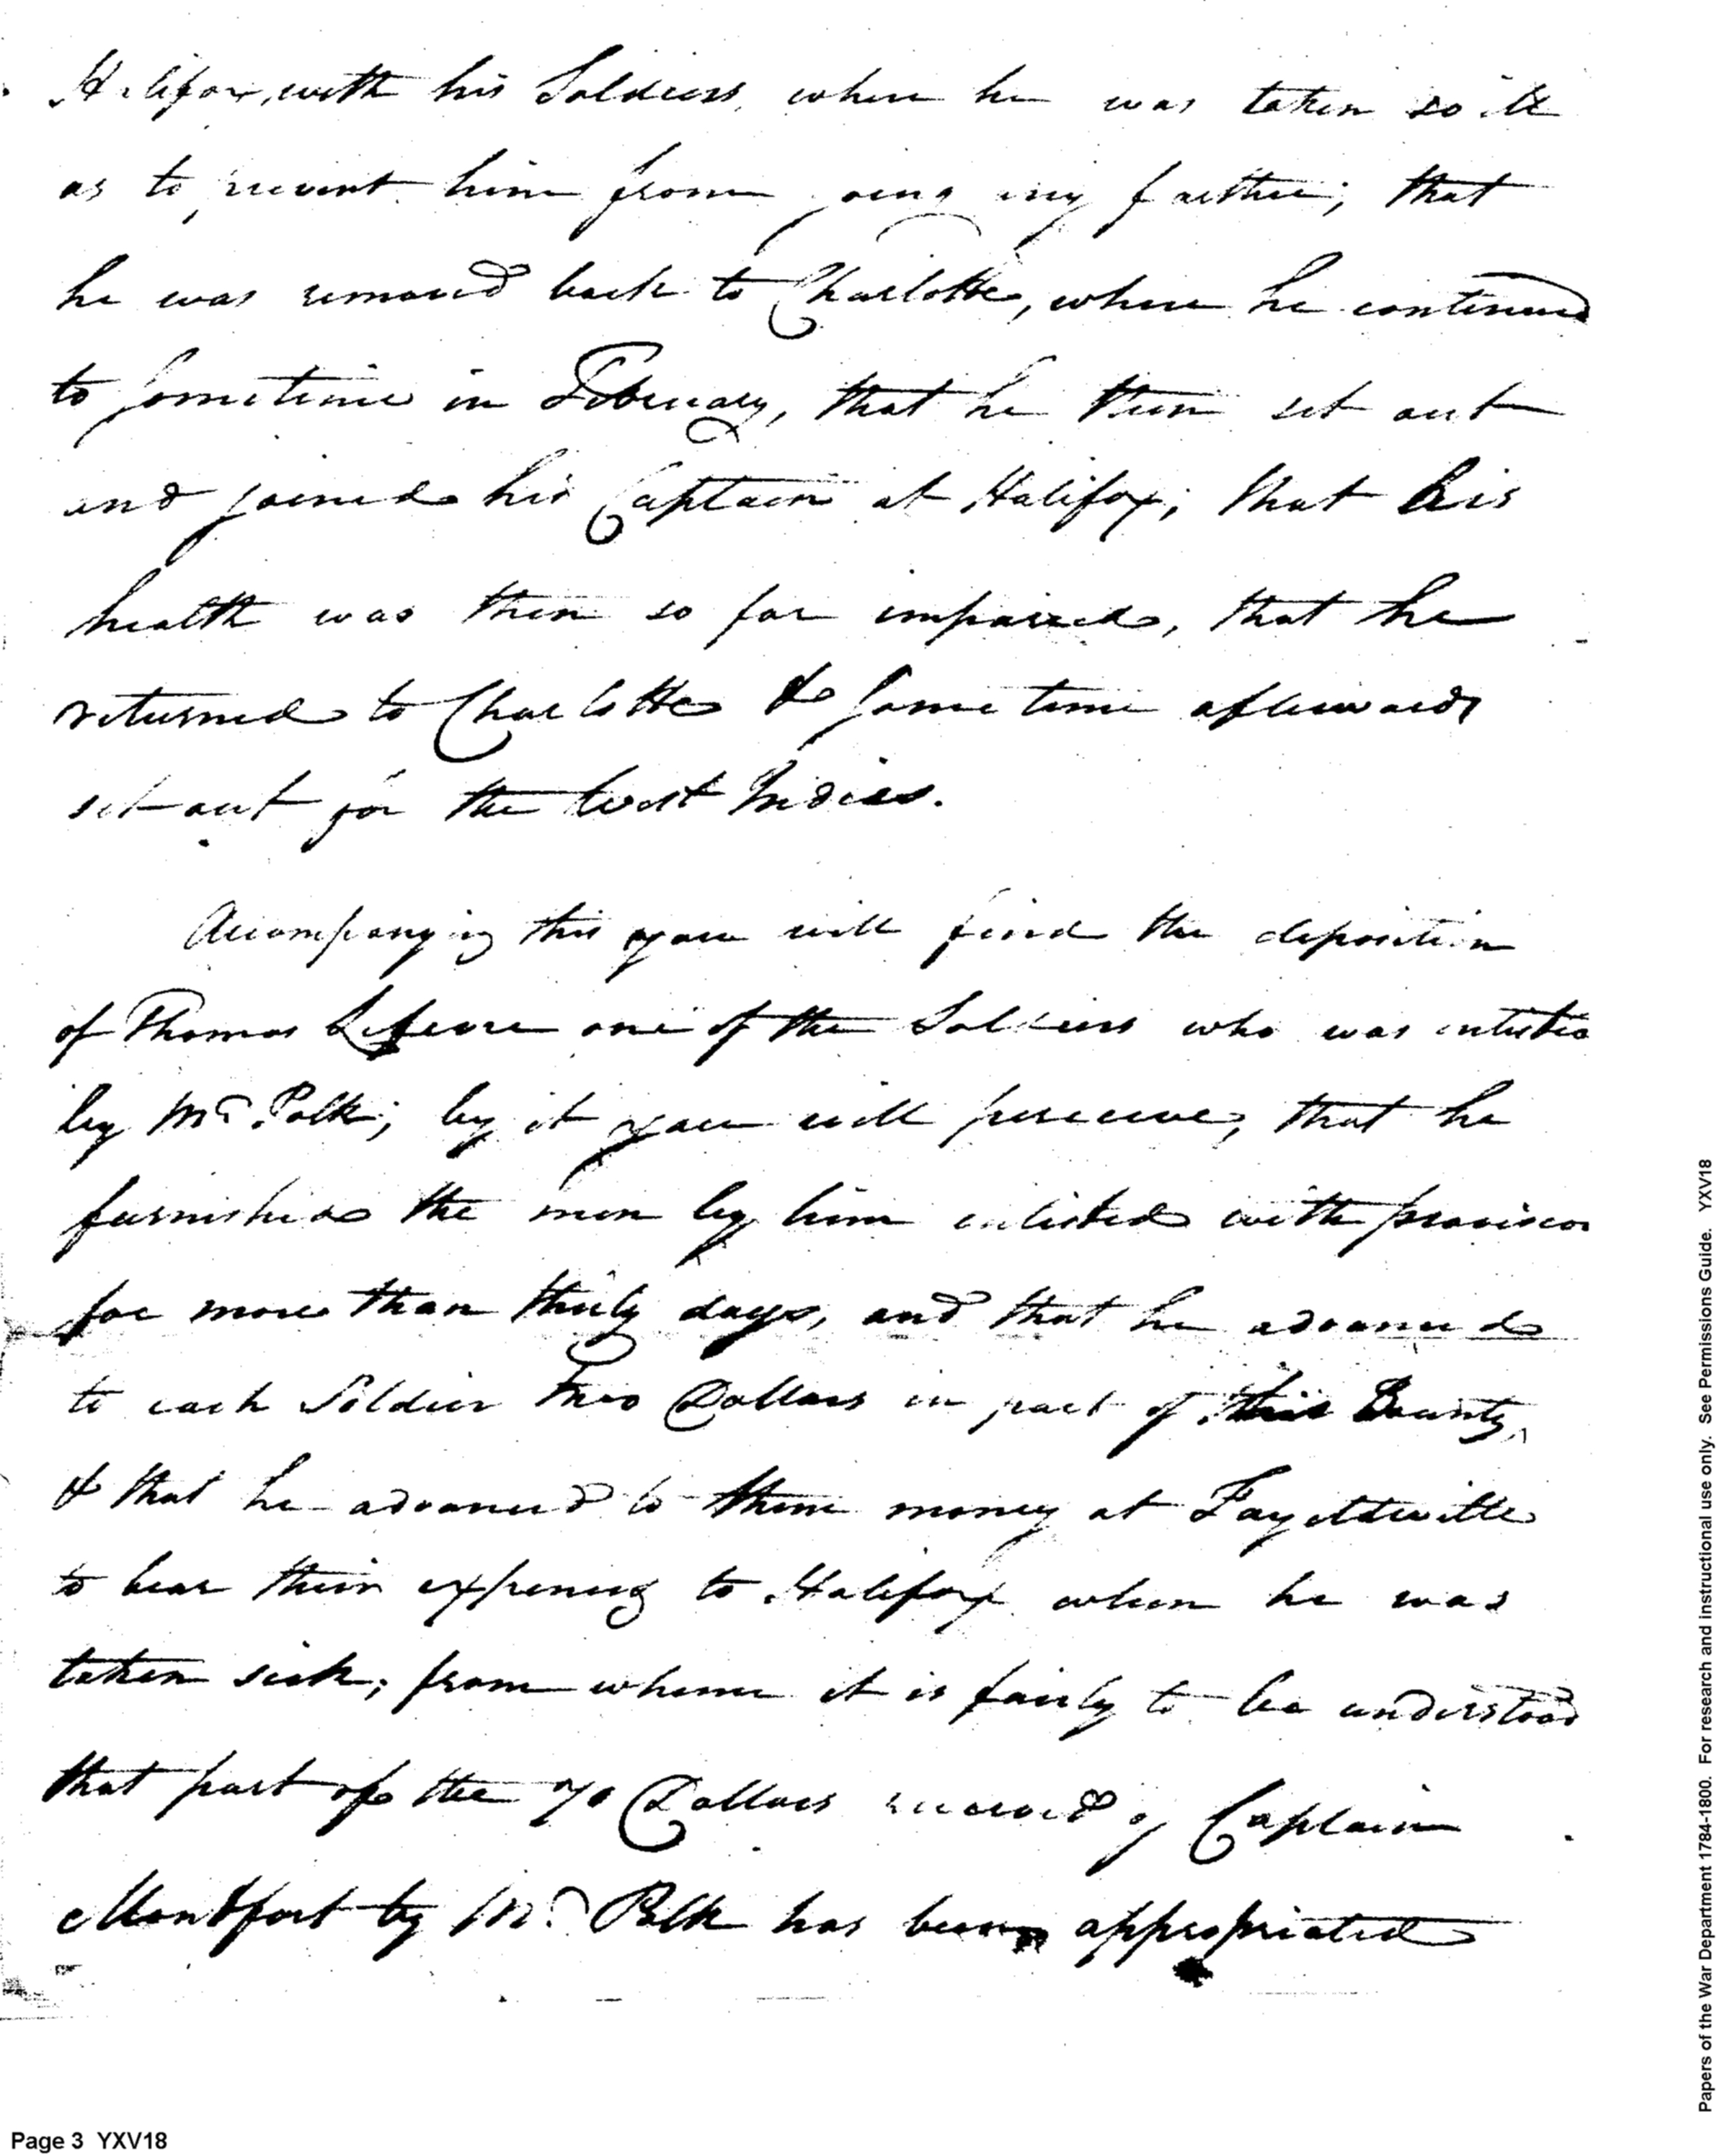 Halifax, with his Soldiers, when he was taken so ill
as to prevent him from going any farther; that
he was removed back to Charlotte, where he continued
to sometime in February, that he then set out
and joined his Captain at Halifax; that his
health was then so far impaired, that he
returned to Charlotte & some time afterwards
set out for the West Indies.
Accompanying this you will find the deposition
of Thomas Lefevre one of the Soldiers who was enlisted
by Mr. Polk; by it you will perceive, that he
furnished the men by him enlisted with provision
for more than thirty days, and that he advanced
to each Soldier two Dollars in part of this Bounty,
& that he advanced to them money at Fayetteville
to bear their expences to Halifax when he was
taken sick; from whence it is fairly to be understood
that part of the 70 Dollars received of Captain
Montfort by Mr. Polk has been appropriated
Page 3 YXV18
Papers of the War Department 1784-1800. For research and instructional use only. See Permissions Guide. YXV18